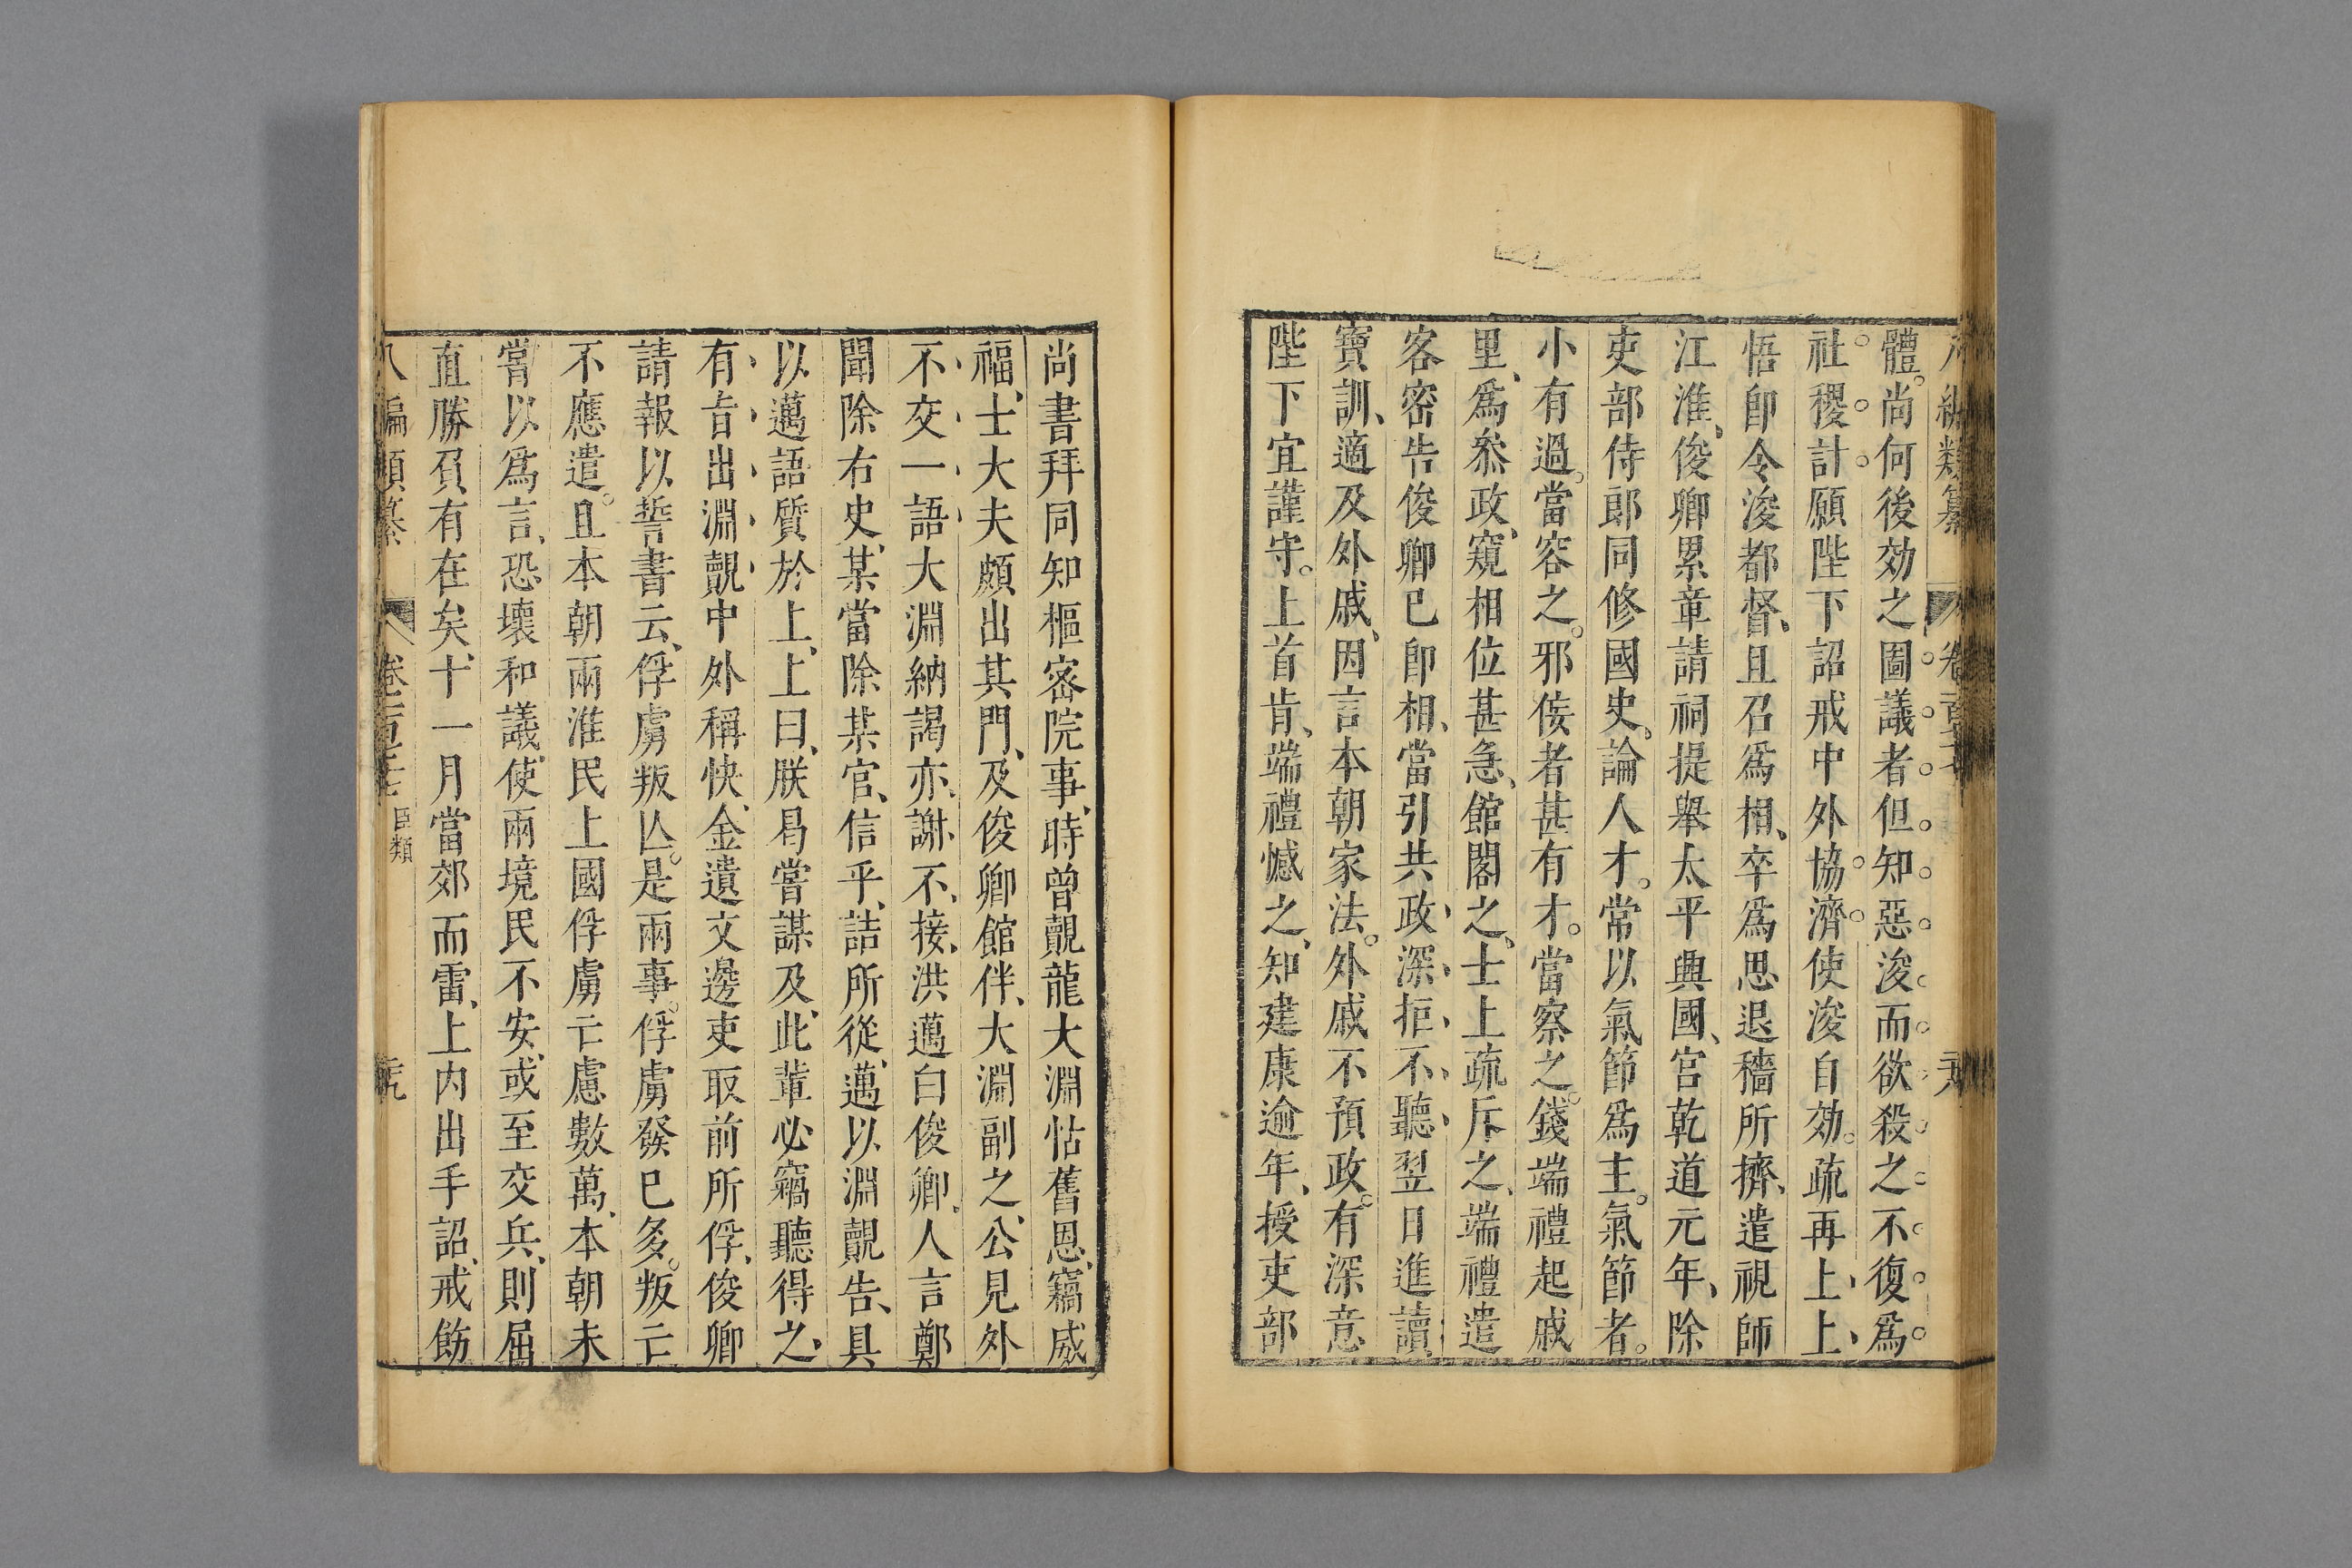 類纂
體尚何後効之圖議者但知惡浚而欲殺之不復爲
社稷計願陛下詔戒中外協濟使浚自効疏再上上
悟卽令浚都督且召爲相卒爲思退穡所擠遣視師
江淮俊卿累章請祠提舉太平興國宮乾道元年除
吏部侍郎同修國史論人才常以氣節爲主氣節者
小有過當容之邪佞者甚有才當察之錢端禮起戚
里爲叅政窺相位甚急館閣之士上疏斥之端禮遣
客密告俊卿已卽相當引共政深拒不聽翌日進讀
寶訓適及外戚因言本朝家法外戚不預政有深意
陛下宜謹守上首肯端禮憾之知建康逾年授吏部
尚書拜同知樞密院事時曾覿龍大淵怙舊恩竊威
福士大夫頗出其門及俊卿館伴大淵副之公見外
不交一語大淵納謁亦謝不接洪邁白俊卿人言鄭
聞除右史某當除某官信乎詰所從邁以淵覿告具
以邁語質於上上曰朕曷嘗謀及此輩必竊聽得之
有旨出淵覿中外稱快金遺文邊吏取前所俘俊卿
請報以誓書云俘虜叛亾是兩事俘虜發已多叛亡
不應遣且本朝兩淮民上國俘虜亡慮數萬本朝未
嘗以爲言恐壞和議使兩境民不安或至交兵則屈
直勝負有在矣十一月當郊而雷上內出手詔戒飭
八編類纂 卷 臣類